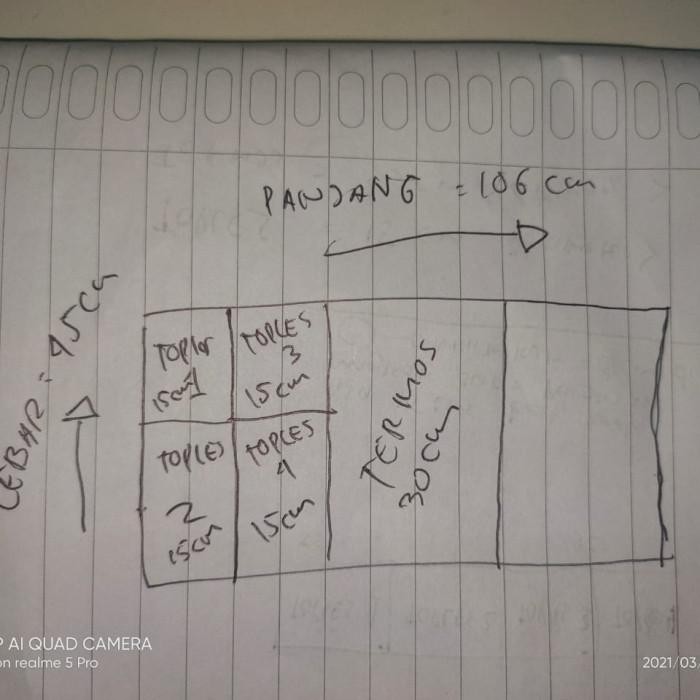 PANJANG = 106 cm
LEBAR = 45 cm
TOPLES
15cm 1
TOPLES
3
15cm
TOPLES
2
15cm
TOPLES
4
15cm
TERMOS
30cm
P AI QUAD CAMERA
on realme 5 Pro
2021/03